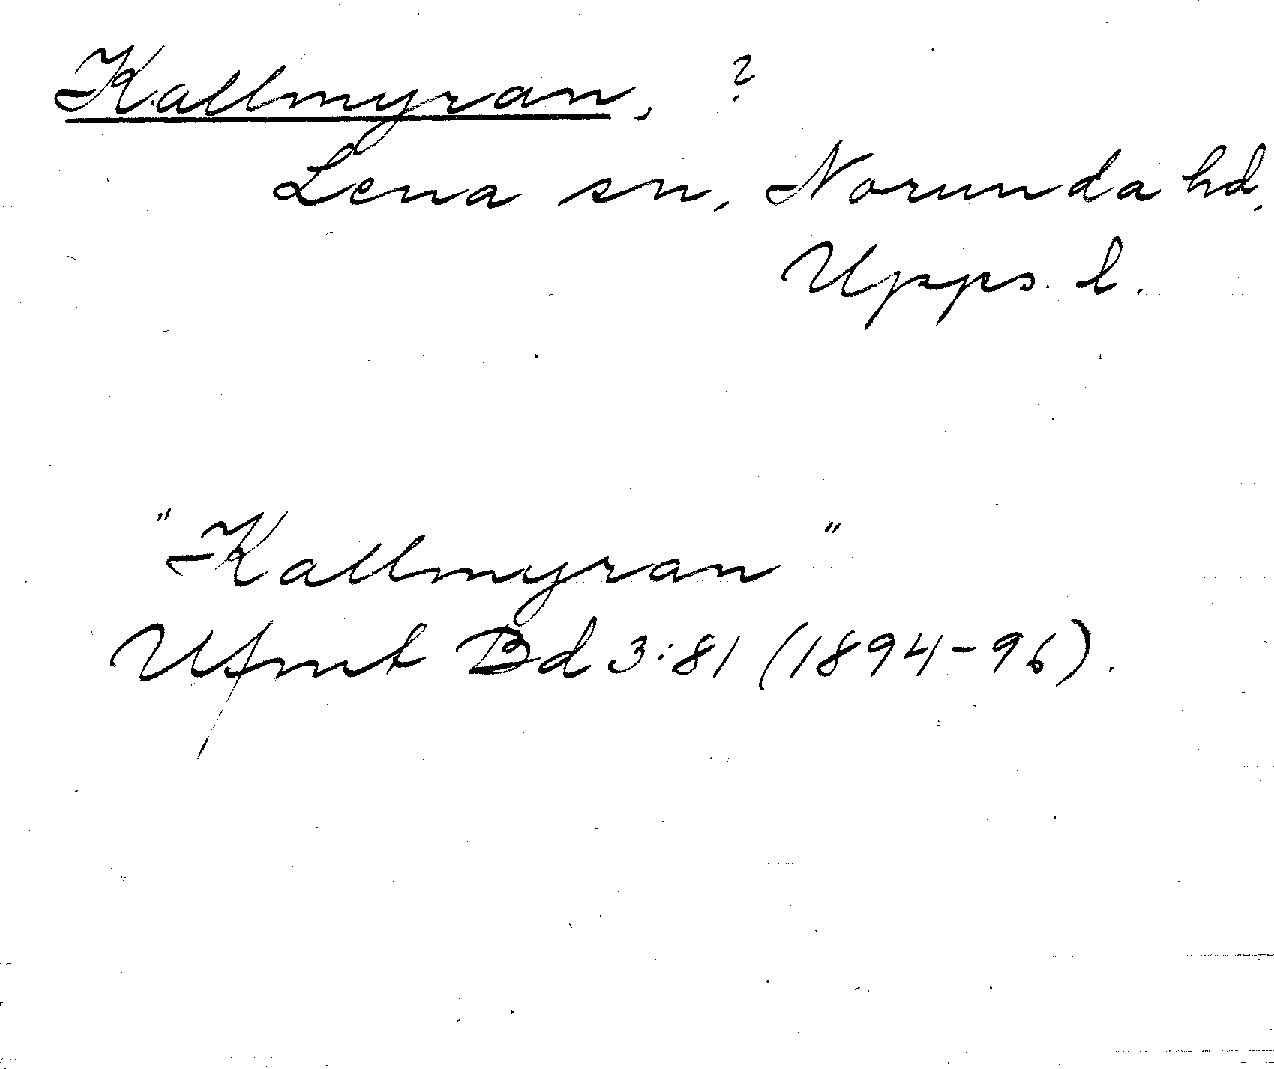 Kallmyran, ?
Lena sn, Norunda hd,
Upps. l.
"Kallmyran"
Ufmt Bd 3:81 (1894-96).